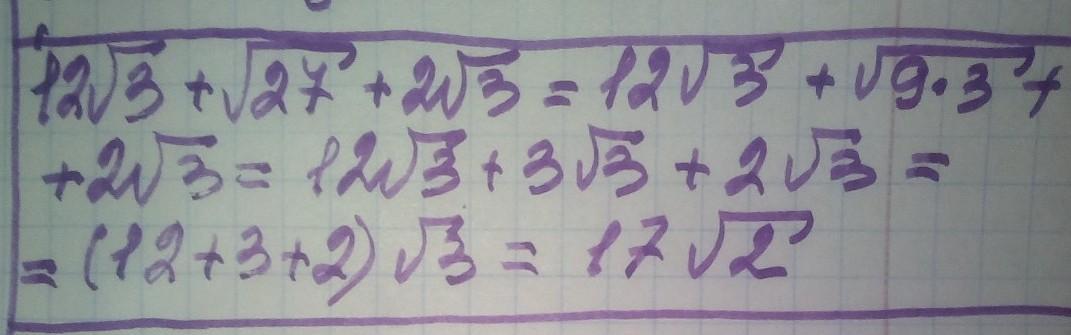 12√3 + √27 + 2√3 = 12√3 + √9·3 +
+ 2√3 = 12√3 + 3√3 + 2√3 =
= (12+3+2)√3 = 17√2